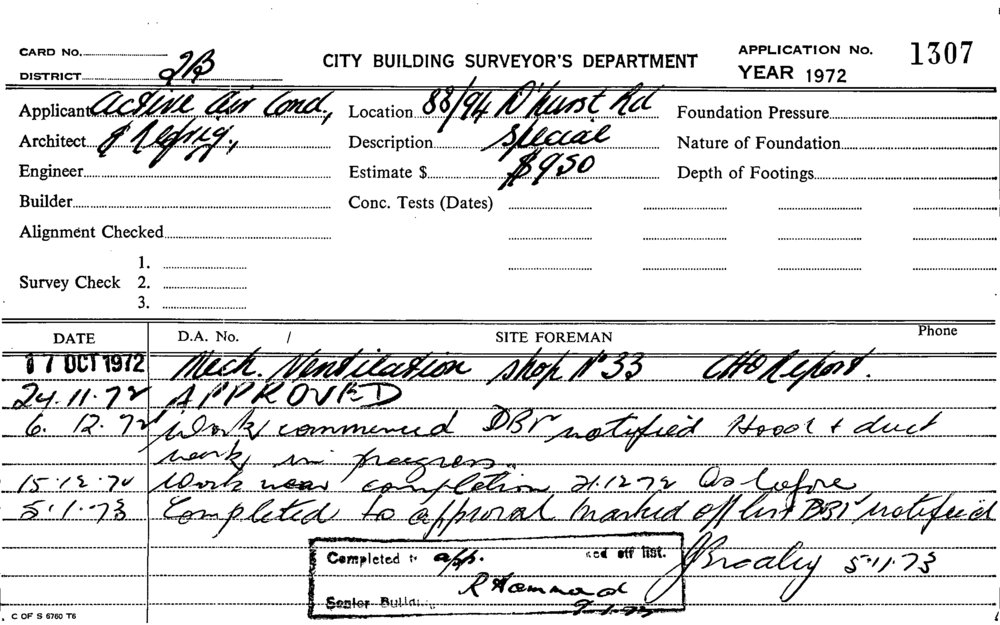 CARD No. CITY BUILDING SURVEYOR'S DEPARTMENT APPLICATION No. 1307
DISTRICT 2B YEAR 1972
Applicant Active Air Cond., Location 88/94 D'hurst Rd Foundation Pressure
Architect & Refrig., Description special Nature of Foundation
Engineer Estimate $ $950 Depth of Footings
Builder Conc. Tests (Dates)
Alignment Checked
1.
Survey Check 2.
3.
DATE D.A. No. / SITE FOREMAN Phone
17 OCT 1972 Mech. Ventilation shop No 33 CHO Report.
24.11.72 APPROVED
6. 12. 72 Work commenced DBI notified Hood & duct
work in progress.
15.12.72 Work near completion 21.12.72 As before
5.1.73 Completed to approval marked off list DBI notified
Completed to app. ked off list. 5.11.73
R Hammond
Senior Buildi
9.1.73
C OF S 6760 T6